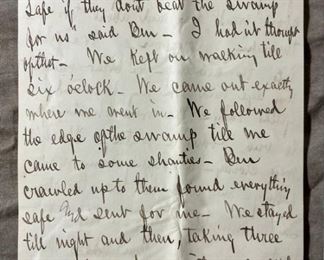 safe if they dont beat the swamp
for us" said Ben - I hadn't thought
of that - We kept on walking till
six o'clock - We came out exactly
where we went in - We followed
the edge of the swamp till we
came to some shanties - Ben
crawled up to them found everything
safe and sent for me - We stayed
till night and then, taking three